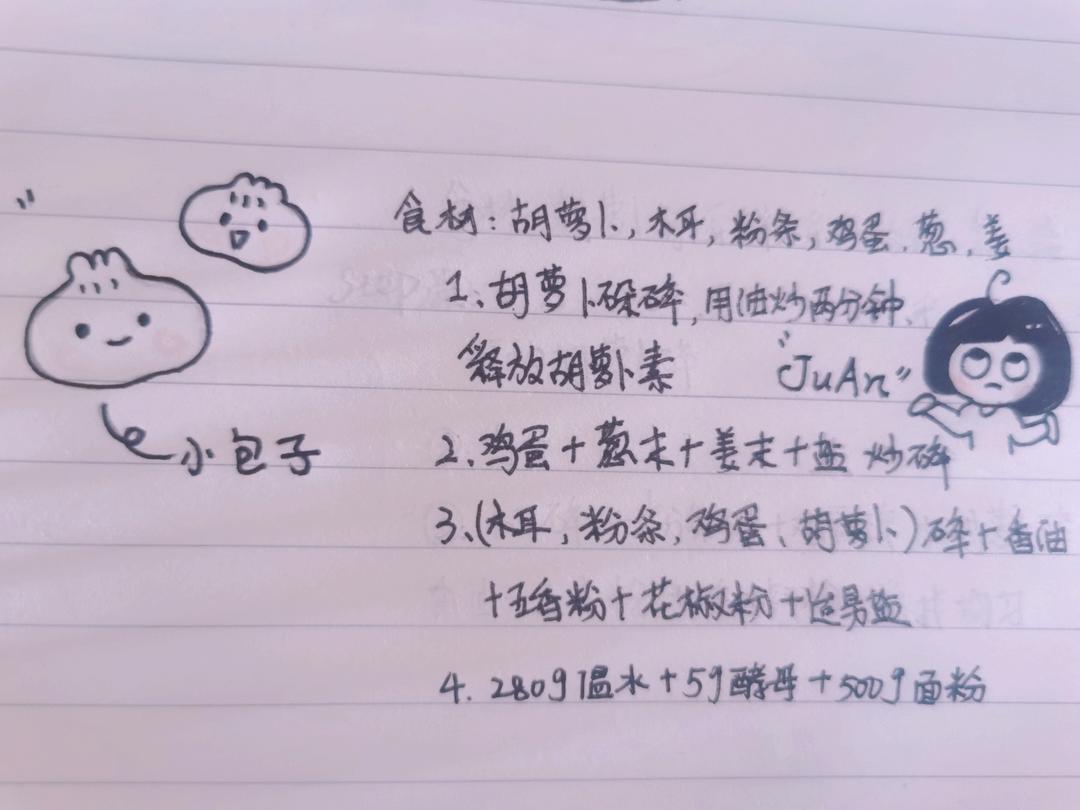 食材：胡萝卜,木耳,粉条,鸡蛋.葱.姜
1、胡萝卜跺碎,用油炒两分钟、
释放胡萝卜素
"JuAn"
小包子
2、鸡蛋+葱末+姜末+盐 炒碎
3、(木耳,粉条,鸡蛋、胡萝卜)碎+香油
+五香粉+花椒粉+适量盐
4. 280g温水+5g酵母+500g面粉